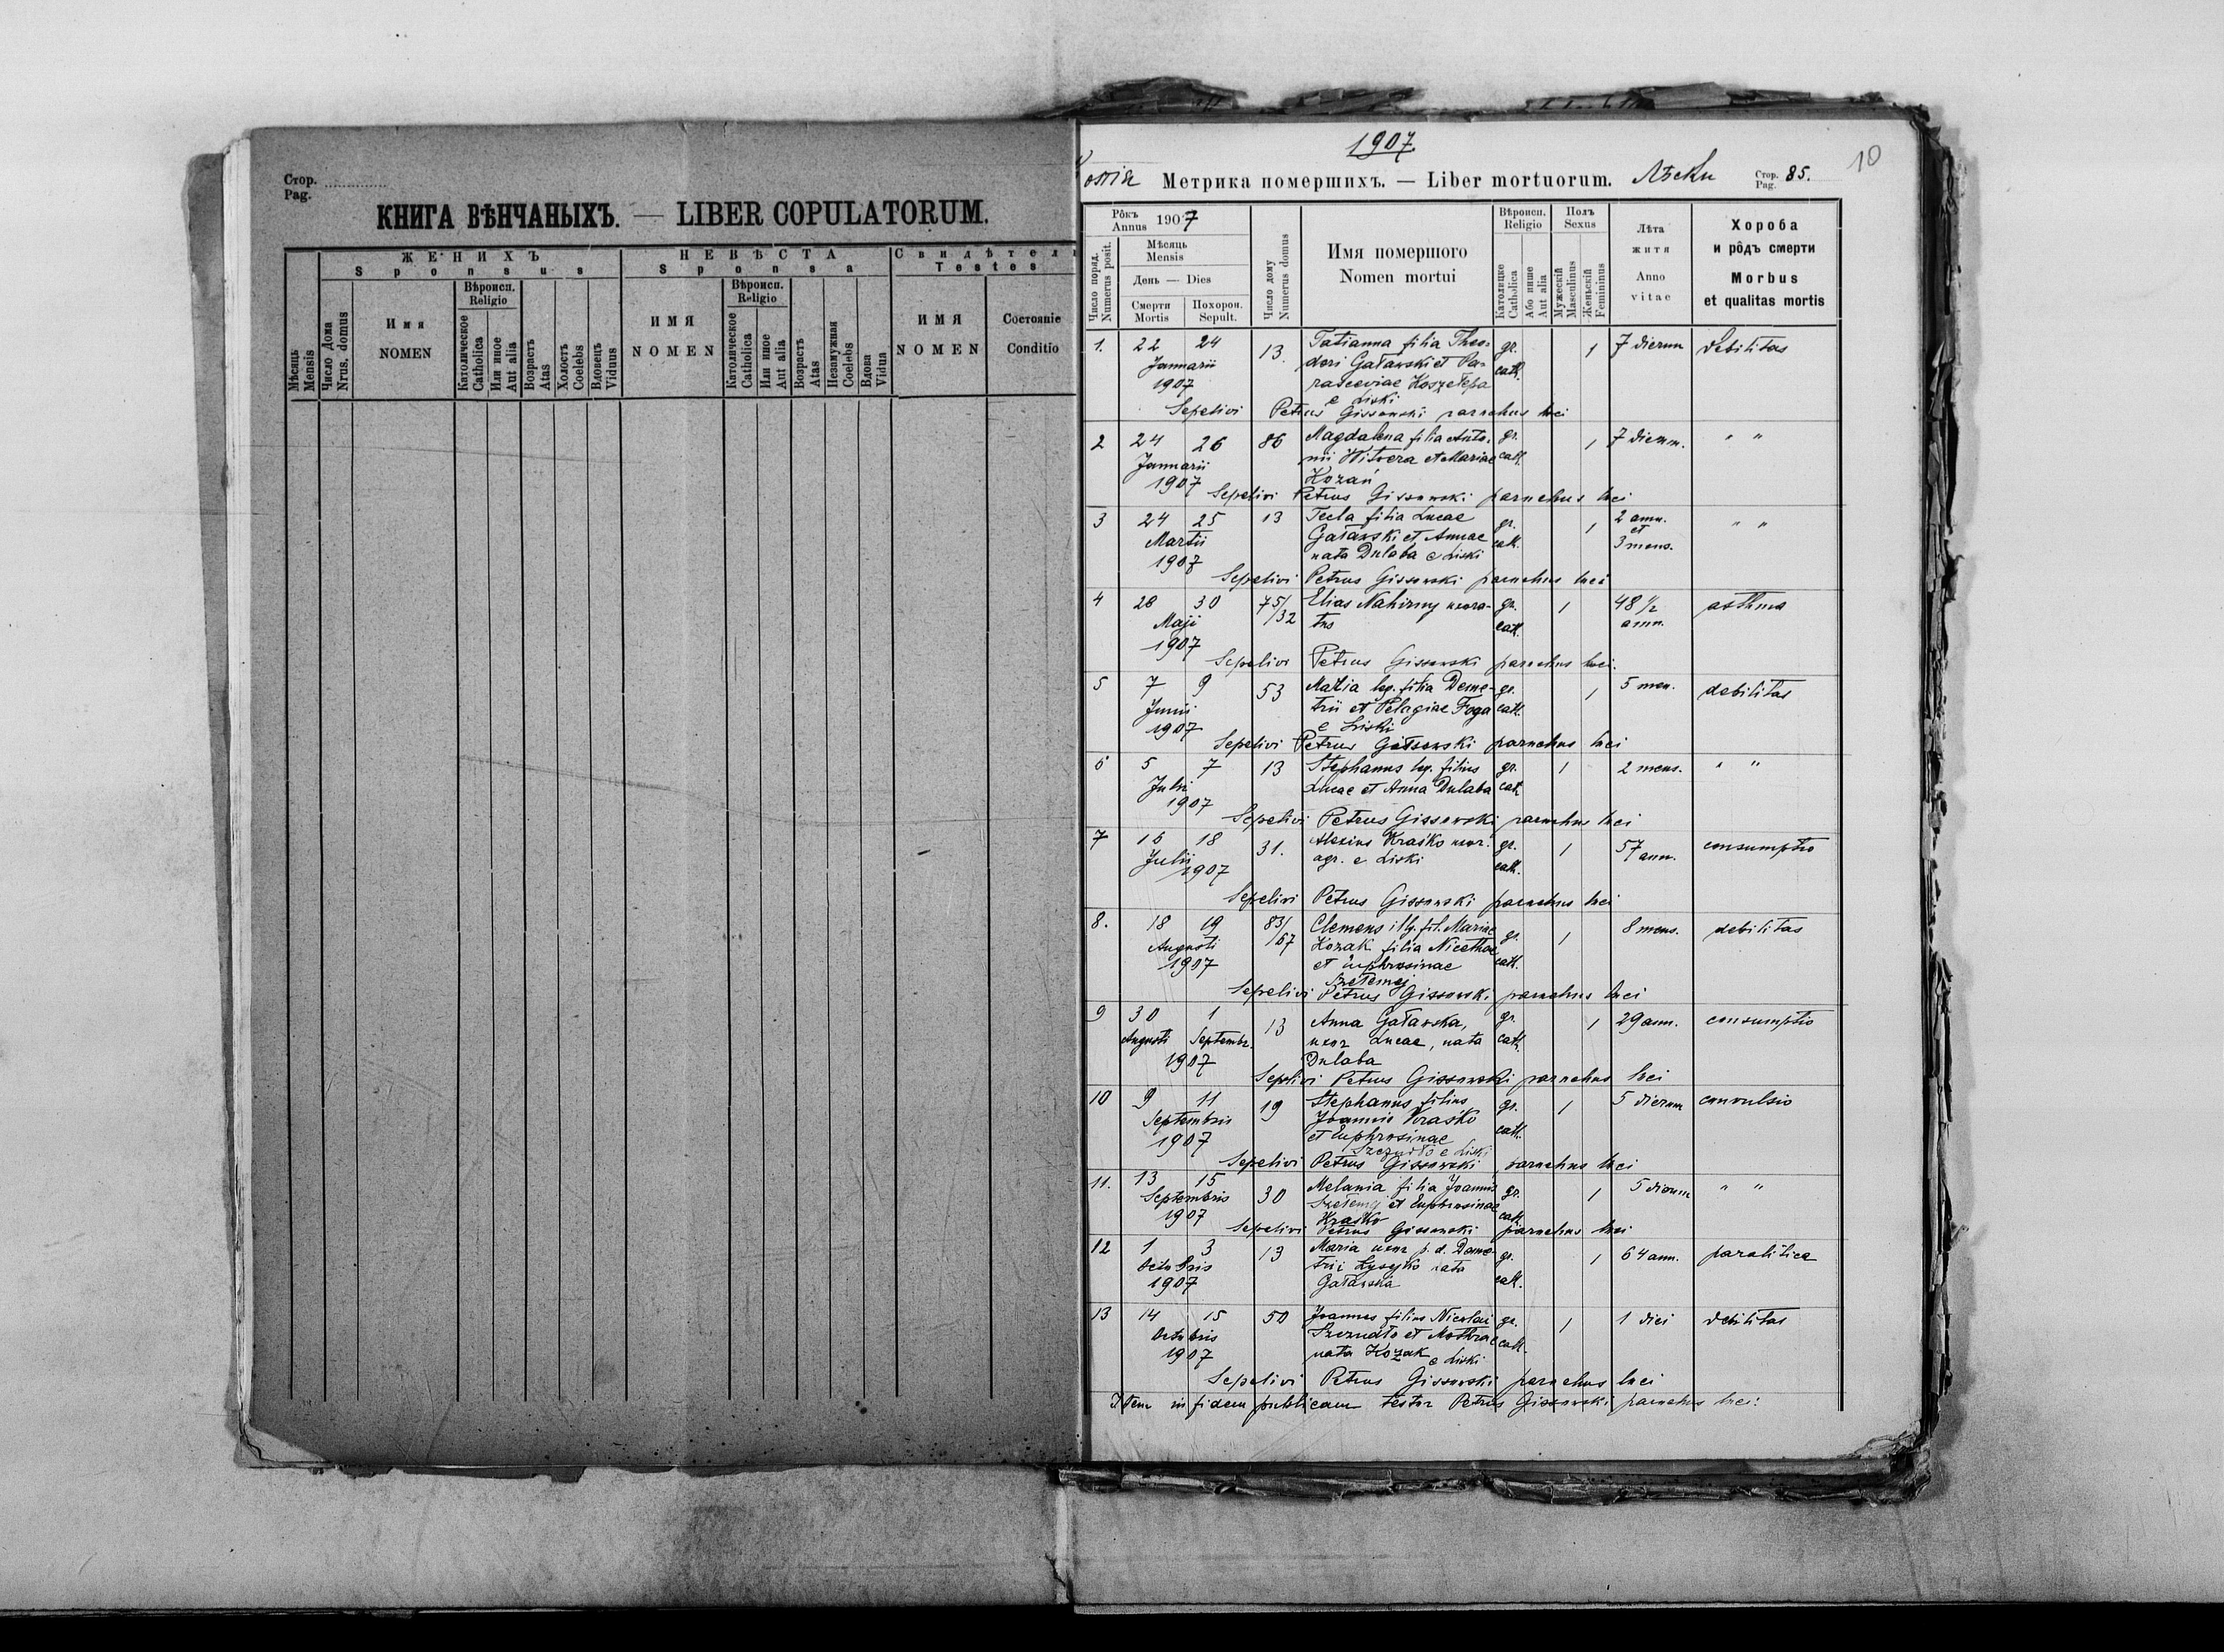 Стор.
Pag.
КНИГА ВѢНЧАНЫХЪ. — LIBER COPULATORUM.
Мѣсяць
Mensis
Число Дома
Nrus. domus
ЖЕНИХЪ
Sponsus
Имя
NOMEN
Вѣроисп.
Religio
Католическое
Catholica
Или иное
Aut alia
Возрастъ
Atas
Холостъ
Coelebs
Вдовецъ
Viduus
НЕВѢСТА
Sponsa
ИМЯ
NOMEN
Вѣроисп.
Religio
Католическое
Catholica
Или иное
Aut alia
Возрастъ
Atas
Незамужная
Coelebs
Вдова
Vidua
Свидѣтел
Testes
ИМЯ
NOMEN
Состояніе
Conditio
1907
10
Метрика помершихъ. — Liber mortuorum. Лѣски Стор. Pag. 85.
Число поряд.
Numerus posit.
Рôкъ
Annus 1907
Мѣсяць
Mensis
День — Dies
Смерти
Mortis
Похорон.
Sepult.
Число дому
Numerus domus
Имя помершого
Nomen mortui
Вѣроисп.
Religio
Католицке
Catholica
Або инше
Aut alia
Полъ
Sexus
Мужескій
Masculinus
Женьскій
Femininus
Лѣта
житя
Anno
vitae
Хороба
и рôдъ смерти
Morbus
et qualitas mortis
1. 22 24 13. Tatianna filia Theo- gr. 1 7 dierum debilitas
Januarii dori Gaławski et Pa- cath.
1907 rasceviae Koszełepa
e Liski
Sepelivi Petrus Gissowski parochus loci
2 24 26 86 Magdalena filia Anto- gr. 1 7 dierum. " "
Januarii nii Witvera et Mariae cath.
1907 Kozań
Sepelivi Petrus Gissowski parochus loci
3 24 25 13 Tecla filia Lucae gr. 1 2 ann. " "
Martii Gaławski et Annae cath. et
1907 nata Dulaba e Liski 3 mens.
Sepelivi Petrus Gissowski parochus loci
4 28 30 75/32 Elias Nahirny uxora- gr. 1 48 1/2 asthma
Maji tus cath. ann.
1907
Sepelivi Petrus Gissowski parochus loci.
5 7 9 53 Maria leg. filia Deme- gr. 1 5 men. debilitas
Junii trii et Pelagiae Foga cath.
1907 e Liski
Sepelivi Petrus Gissowski parochus loci
6 5 7 13 Stephanus leg. filius gr. 1 2 mens. " "
Julii Lucae et Anna Dulaba cath
1907
Sepelivi Petrus Gissowski parochus loci
7 16 18 31. Alexius Kraśko uxor. gr. 1 57 consumptio
Julii agr. e Liski cath. ann.
1907
Sepelivi Petrus Gissowski parochus loci
8. 18 19 83/67 Clemens illg. fil. Mariae gr. 1 8 mens. debilitas
Augusti Kozak filia Nicethae cath.
1907 et Euphrosinae
Szełemej
Sepelivi Petrus Gissowski parochus loci
9 30 1 13 Anna Gaławska, gr. 1 29 ann. consumptio
Augusti Septembr. uxor Lucae, nata cath.
1907 Dulaba
Sepelivi Petrus Gissowski parochus loci
10 9 11 19 Stephanus filius gr. 1 5 dierum convulsio
Septembris Joannis Kraśko cath.
1907 et Euphrosinae
e Liski
Sepelivi Petrus Gissowski parochus loci
11. 13 15 30 Melania filia Joannis gr. 1 5 dierum " "
Septembris Szełemej et Euphrosinae cath
1907 Kraśko
Sepelivi Petrus Gissowski parochus loci
12 1 3 13 Maria uxor p. d. Deme- gr. 1 64 ann. paralitica
Octobris trii nata cath.
1907 Gaławska
13 14 15 50 Joannes filius Nicolai gr. 1 1 diei debilitas
Octobris et Mothrae cath.
1907 nata Kozak e Liski
Sepelivi Petrus Gissowski parochus loci
Item in fidem publicam testor Petrus Gissowski parochus loci: